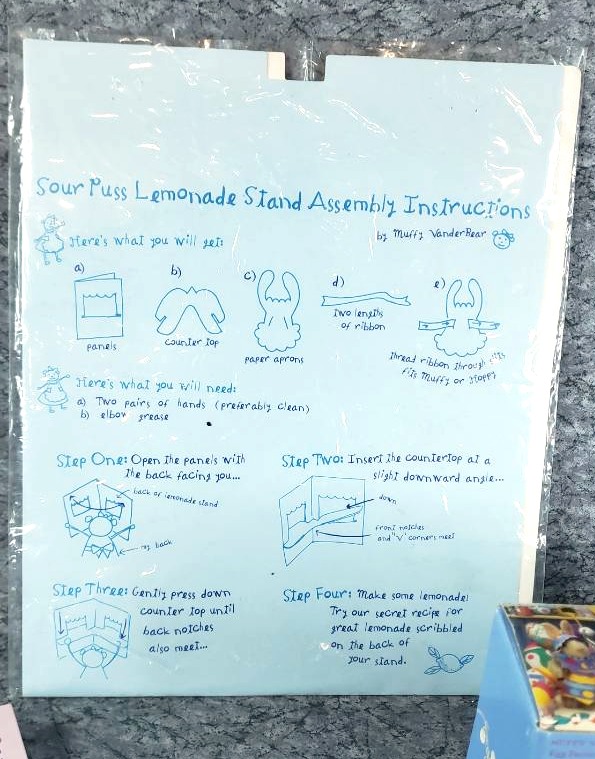 Sour Puss Lemonade Stand Assembly Instructions
by Muffy VanderBear
Here's what you will get:
a)
b)
c)
d)
e)
panels
counter top
paper aprons
Two lengths
of ribbon
Thread ribbon through slits
fits Muffy or Hoppy
Here's what you will need:
a) Two pairs of hands (preferably clean)
b) elbow grease
Step One: Open the panels with
the back facing you...
back of lemonade stand
my back
Step Two: Insert the countertop at a
slight downward angle...
down
front notches
and "V" corners meet
Step Three: Gently press down
counter top until
back notches
also meet...
Step Four: Make some lemonade!
Try our secret recipe for
great lemonade scribbled
on the back of
your stand.